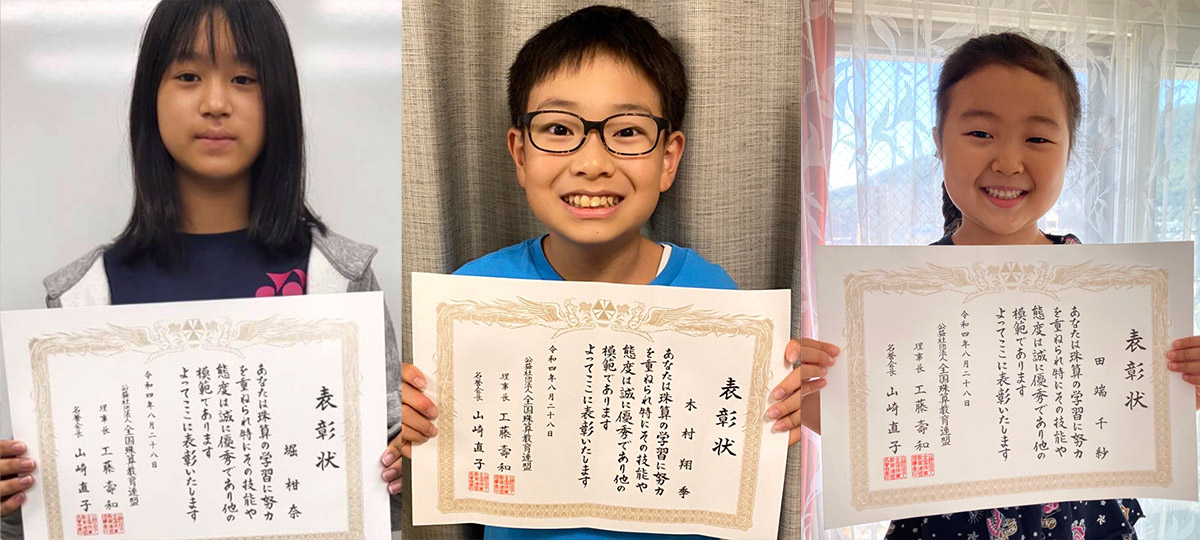 表彰状
堀 柑 奈
あなたは珠算の学習に努力
を重ねられ特にその技能や
態度は誠に優秀であり他の
模範であります
よってここに表彰いたします
令和四年八月二十八日
公益社団法人全国珠算教育連盟
理事長 工藤壽和
名誉会長 山崎直子
表彰状
木村翔季
あなたは珠算の学習に努力
を重ねられ特にその技能や
態度は誠に優秀であり他の
模範であります
よってここに表彰いたします
令和四年八月二十八日
公益社団法人全国珠算教育連盟
理事長 工藤壽和
名誉会長 山崎直子
表彰状
田端千紗
あなたは珠算の学習に努力
を重ねられ特にその技能や
態度は誠に優秀であり他の
模範であります
よってここに表彰いたします
令和四年八月二十八日
公益社団法人全国珠算教育連盟
理事長 工藤壽和
名誉会長 山崎直子